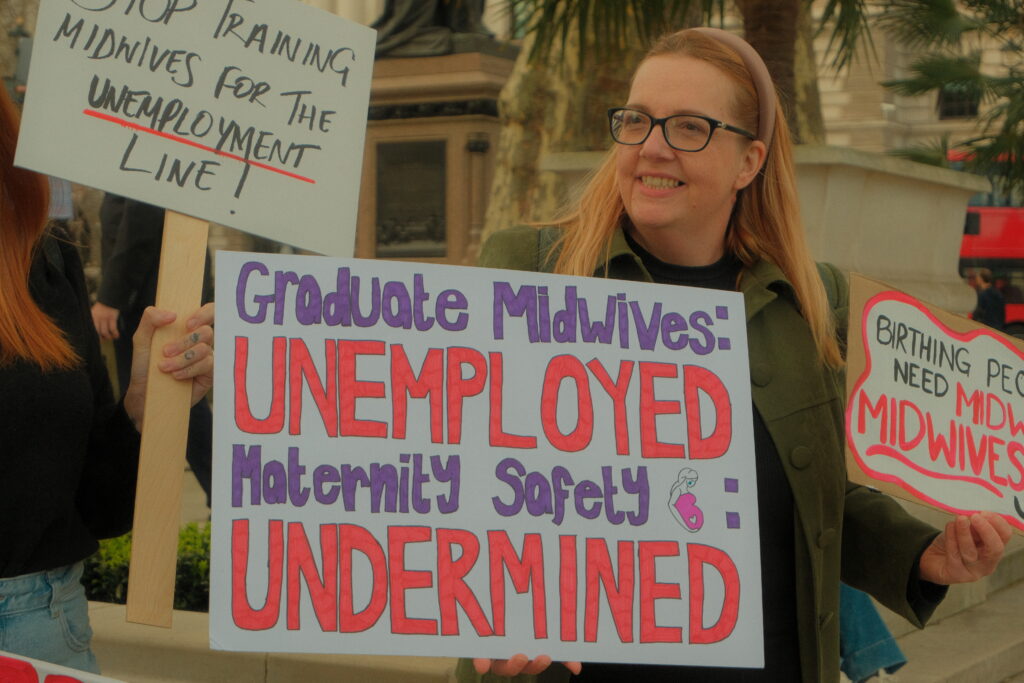 STOP TRAINING
MIDWIVES FOR THE
UNEMPLOYMENT
LINE!
Graduate Midwives:
UNEMPLOYED
Maternity Safety :
UNDERMINED
BIRTHING
NEED
MIDWIVES